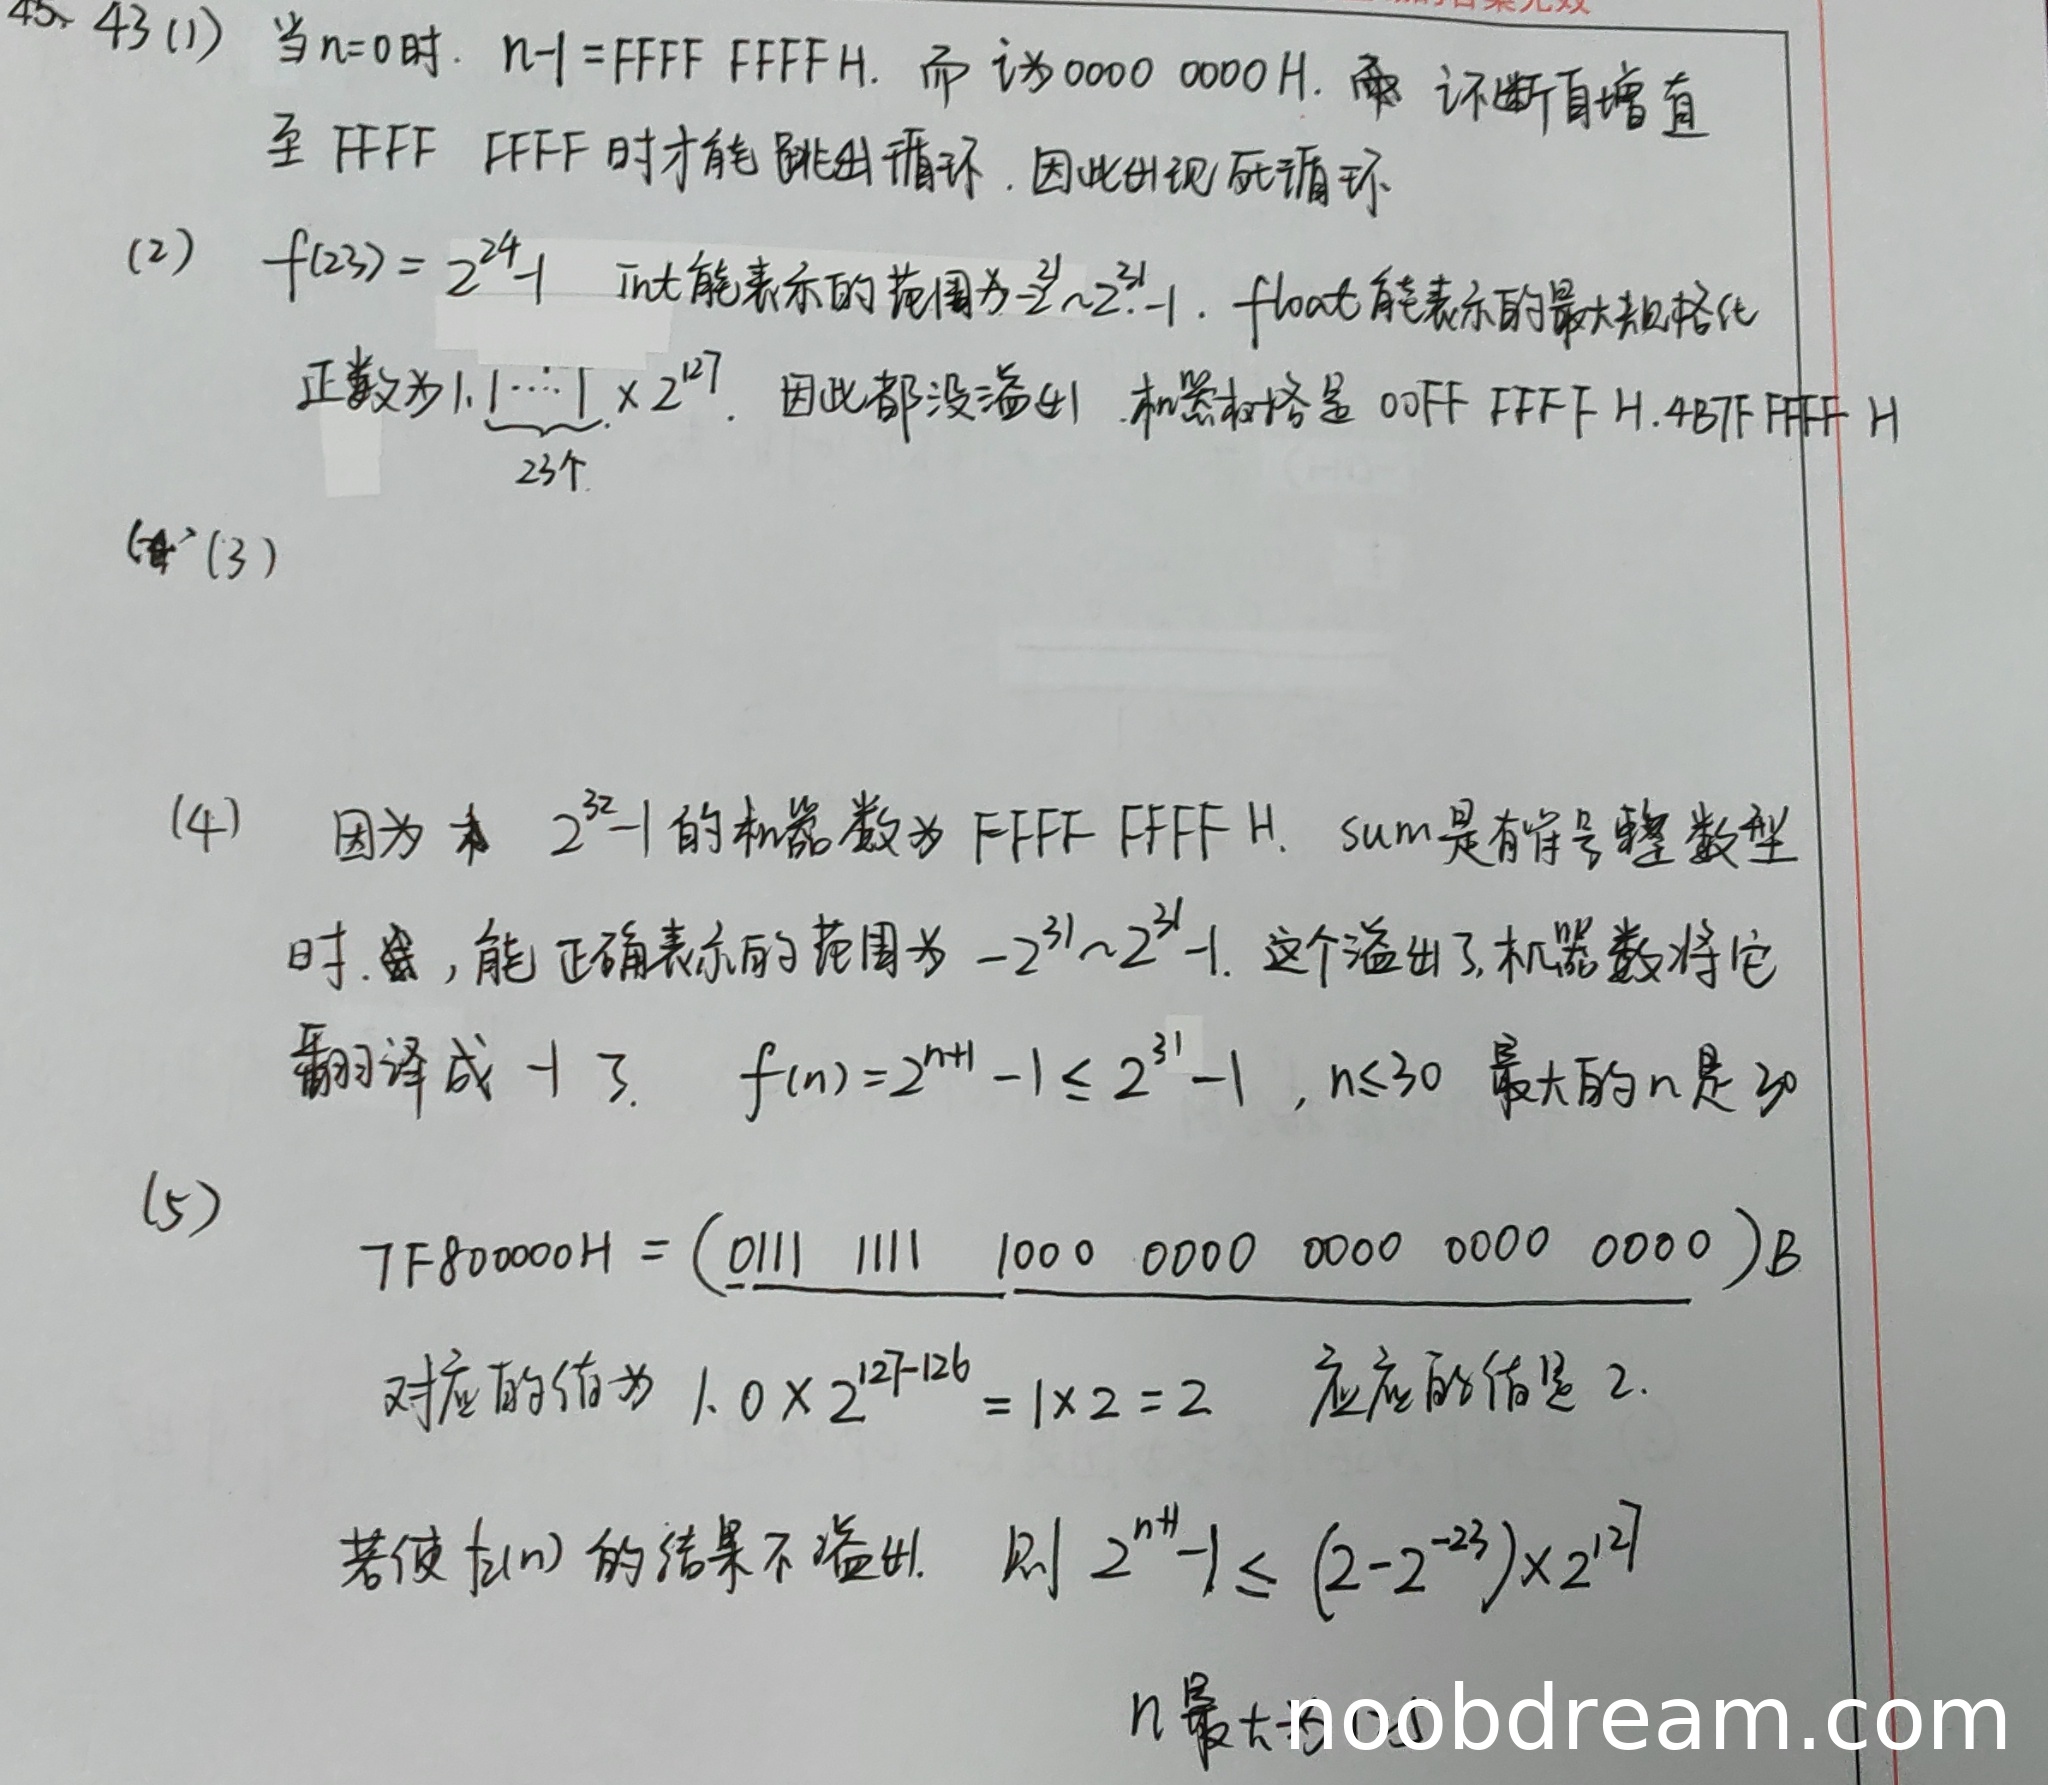 43(1) 当n=0时. n-1=FFFF FFFFH. 而i为0000 0000H. i不断自增直
至 FFFF FFFF时才能跳出循环. 因此出现死循环
(2) f(23)=2^24-1 int能表示的范围为-2^31~2^31-1. float能表示的最大规格化
正数为1.1…1×2^127. 因此都没溢出. 机器数是 00FF FFFF H. 4B7F FFFF H
23个
(3)
(4) 因为 2^32-1的机器数为FFFF FFFF H. sum是有符号整数型
时, 能正确表示的范围为 -2^31~2^31-1. 这个溢出了,机器数将它
翻译成 -1 了. f(n)=2^(n+1)-1≤2^31-1, n≤30 最大的n是30
(5)
7F800000H=(0111 1111 1000 0000 0000 0000 0000)B
对应的值为 1.0×2^(127-126)=1×2=2 应应的值是 2.
若使f2(n)的结果不溢出. 则 2^(n+1)-1≤(2-2^-23)×2^127
n最大为
noobdream.com